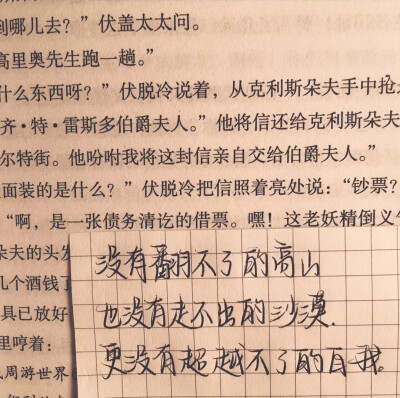 到哪儿去？”伏盖太太问。
高里奥先生跑一趟。”
什么东西呀？”伏脱冷说着，从克利斯朵夫手中抢
齐·特·雷斯多伯爵夫人。”他将信还给克利斯朵夫
尔特街。他吩咐我将这封信亲自交给伯爵夫人。”
面装的是什么？”伏脱冷把信照着亮处说：“钞票？
“啊，是一张债务清讫的借票。嘿！这老妖精倒义
朵夫的头发
几个酒钱了
具已放好
里哼着：
周游世界
没有翻不了的高山
也没有走不出的沙漠.
更没有超越不了的自我。